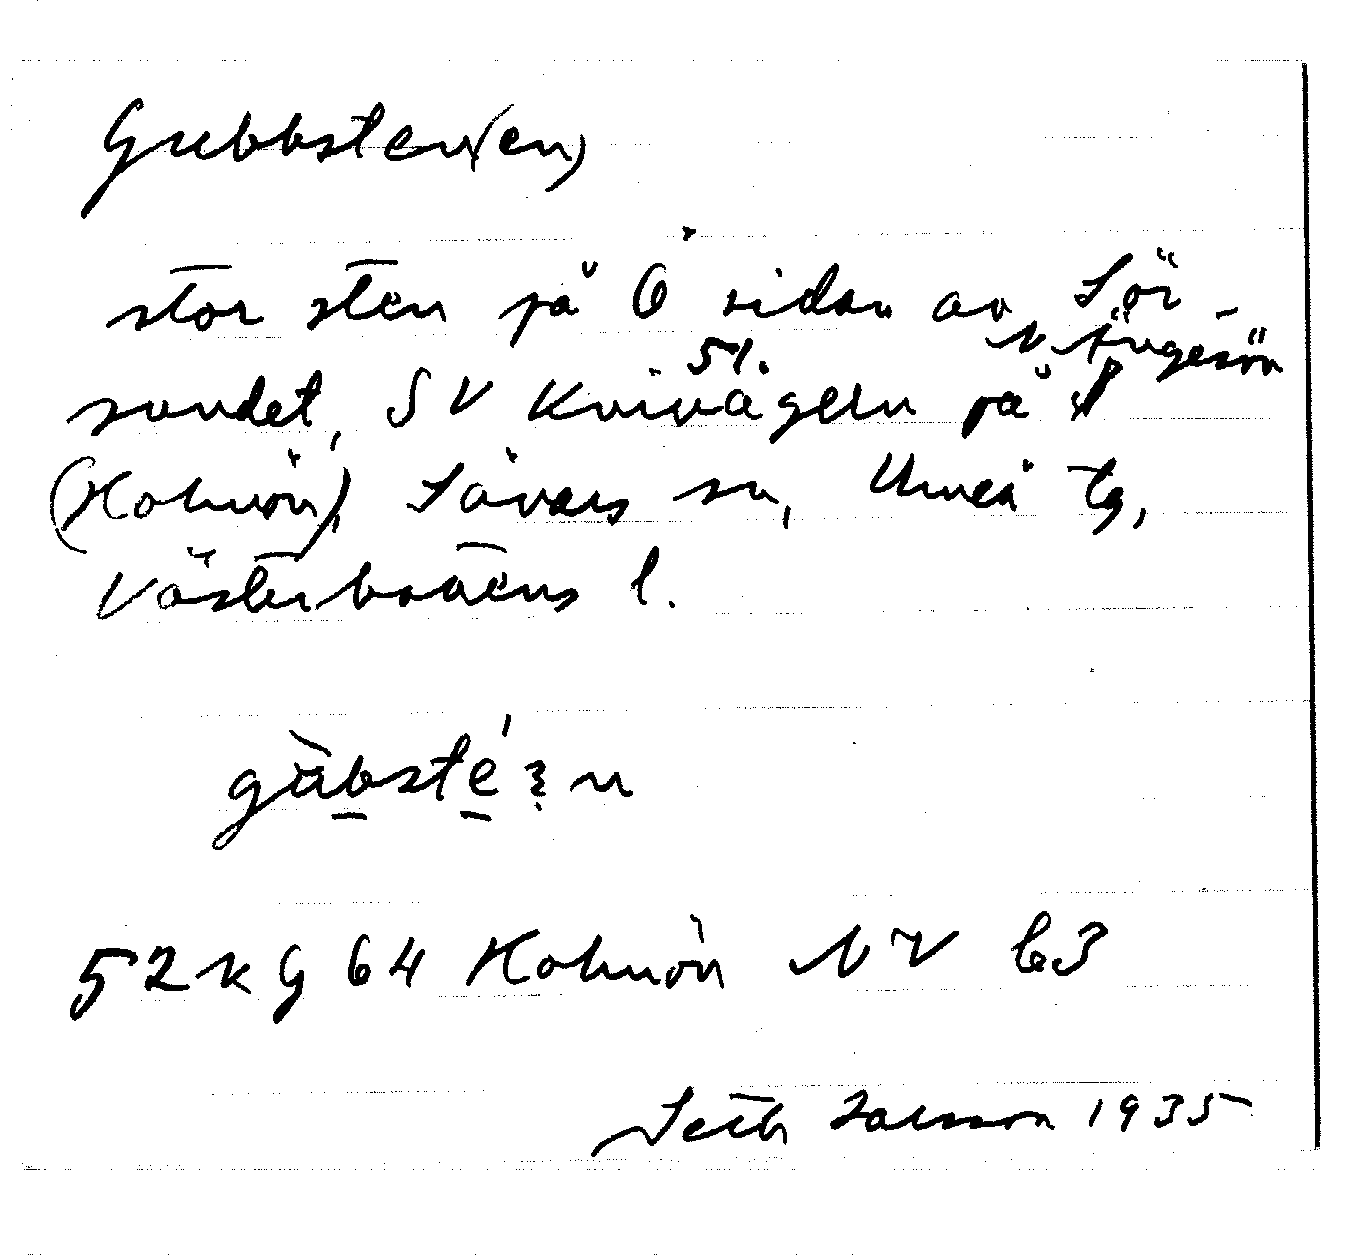 Grubbsten(en)
stor sten på Ö sidan av Sör-
sundet, SV Kvivägeln 51. på N Ängesön
(Holmön), Sävars sn, Umeå tg,
Västerbottens l.
52 K G 64 Holmön NV b3
Seth Jansson 1935